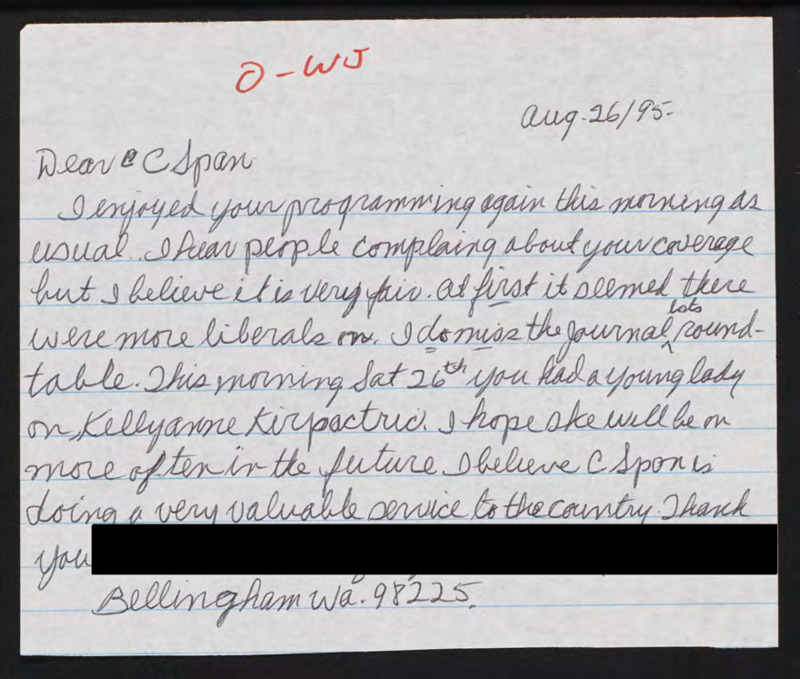 O-WJ
Aug. 26/95.
Dear C Span
I enjoyed your programming again this morning as
usual. I hear people complaing about your coverage
but I believe it is very fair. At first it seemed there
were more liberals on. I do miss the Journal lots round-
table. This morning Sat 26th you had a young lady
on, Kellyanne Kirpactric. I hope she will be on
more often in the future. I believe C Span is
doing a very valuable service to the country. Thank
you
Bellingham Wa. 98225.